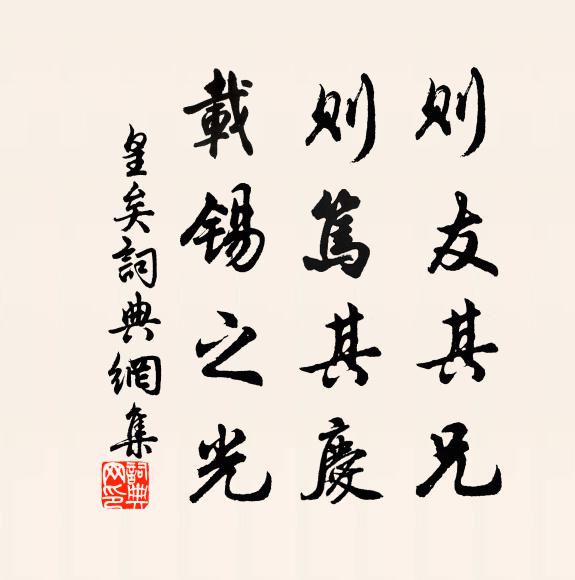 则友其兄
则篤其慶
載锡之光
皇矣詞典網集
詞典网印